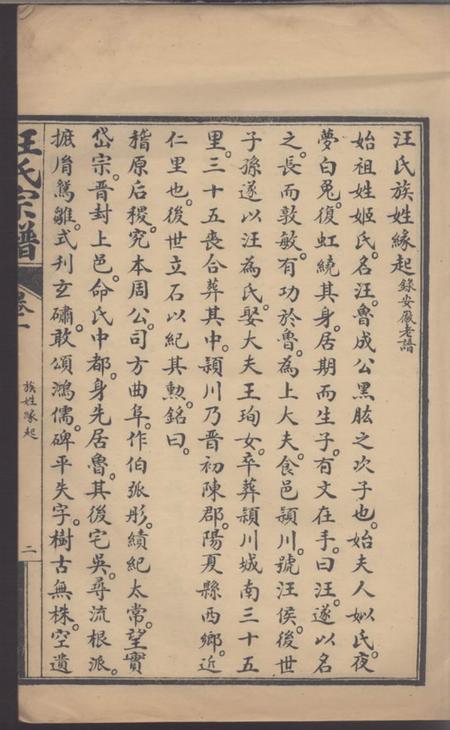 汪氏族姓緣起錄安徽老譜
始祖姓姬氏名汪魯成公黑肱之次子也。始夫人姒氏夜
夢白兔。復虹繞其身。居期而生子。有文在手。曰汪。遂以名
之。長而敦敏。有功於魯。為上大夫。食邑潁川。號汪侯。後世
子孫遂以汪為氏。娶大夫王珣女。卒葬潁川城南三十五
里。三十五喪合葬其中。潁川乃晉初陳郡陽夏縣西鄉。近
仁里也。後世立石以紀其勲。銘曰。
稽原后稷。究本周公。司方曲阜。作伯張彤。績紀太常。望實
岱宗。晋封上邑。命氏中都。身先居魯。其後宅吳。尋流根派。
摭膺鴛雛。式刋玄礵。敢頌鴻儒。碑平失字。樹古無株。空遺
汪氏宗譜
卷一
族姓緣起
二